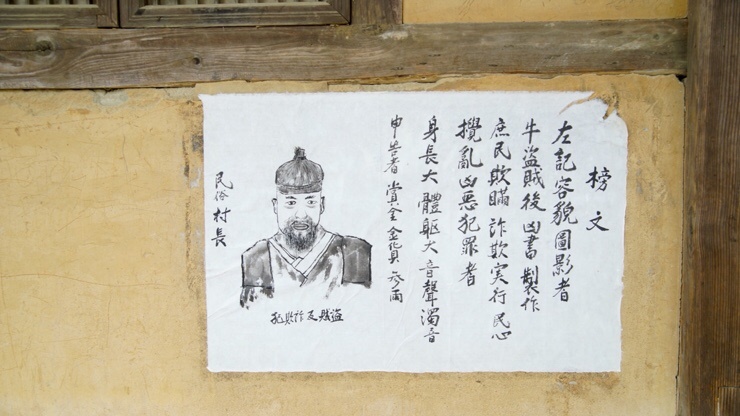 榜文
左記容貌圖影者
牛盜賊後凶書製作
庶民欺瞞詐欺実行民心
攪亂凶悪犯罪者
身長大體軀大音聲濁音
申告者賞金金貨參兩
盜賊及詐欺犯
民俗村長